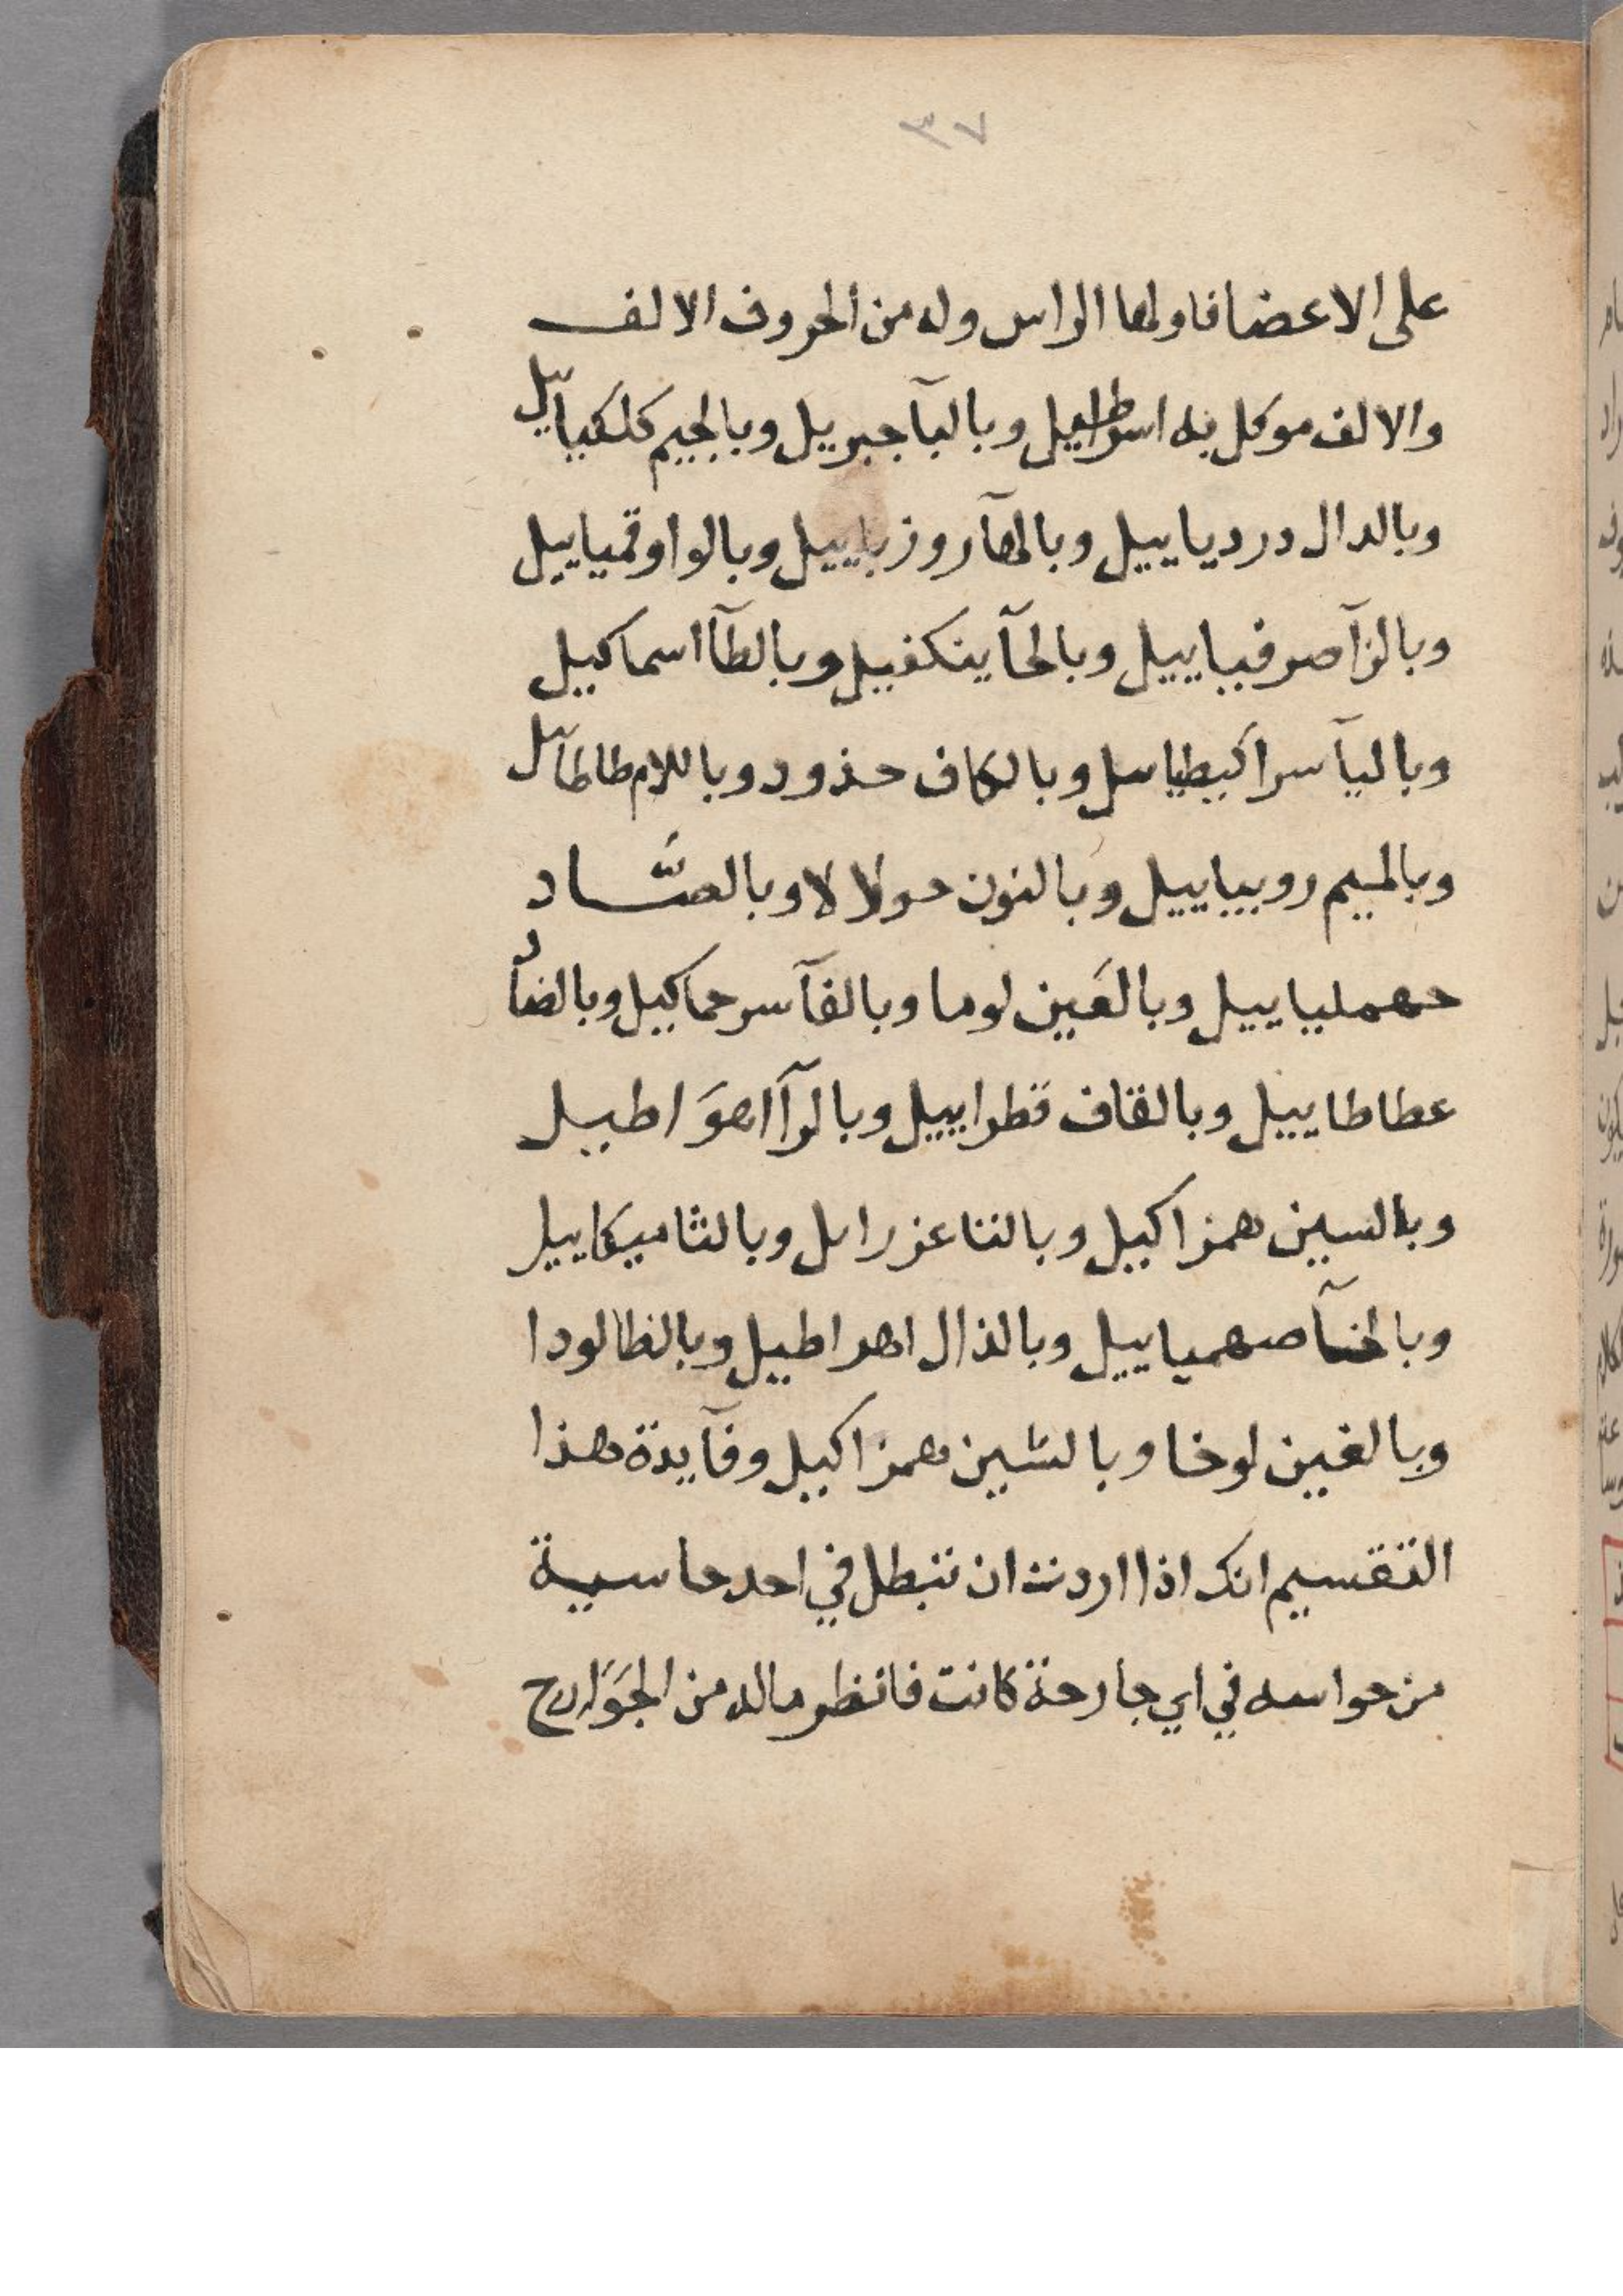 ٣٧
على الاعضا فاولها الراس وله من الحروف الالف
والالف موكل به وبالبآ جبريل وبالجيم كلكياييل
وبالدال درديايييل وبالهآ روزيايييل وبالواو قميايييل
وبالزآ صرفيايييل وبالحآ ينكفيل وبالطآ اسماكيل
وباليآ سراكيطيايل وبالكاف حذورد وباللام طاطآيل
وبالميم روبيايييل وبالنون حولا لا وبالصّاد
حهمليايييل وبالعَين لوما وبالفآ سرحماكيل وبالضاد
عطاطاييل وبالقاف قطراييل وبالرآ اهوَاطيل
وبالسين همزاكيل وبالتا عزرايل وبالثا ميكاييل
وبالخآ صهميايييل وبالذال اهراطيل وبالظا لودا
وبالغين لوخا وبالشين همزاكيل وفآيدة هذا
التقسيم انك اذا اردت ان تبطل في احد حاسية
من حواسه في اي جارحة كانت فانظر ماله من الجَوَارح